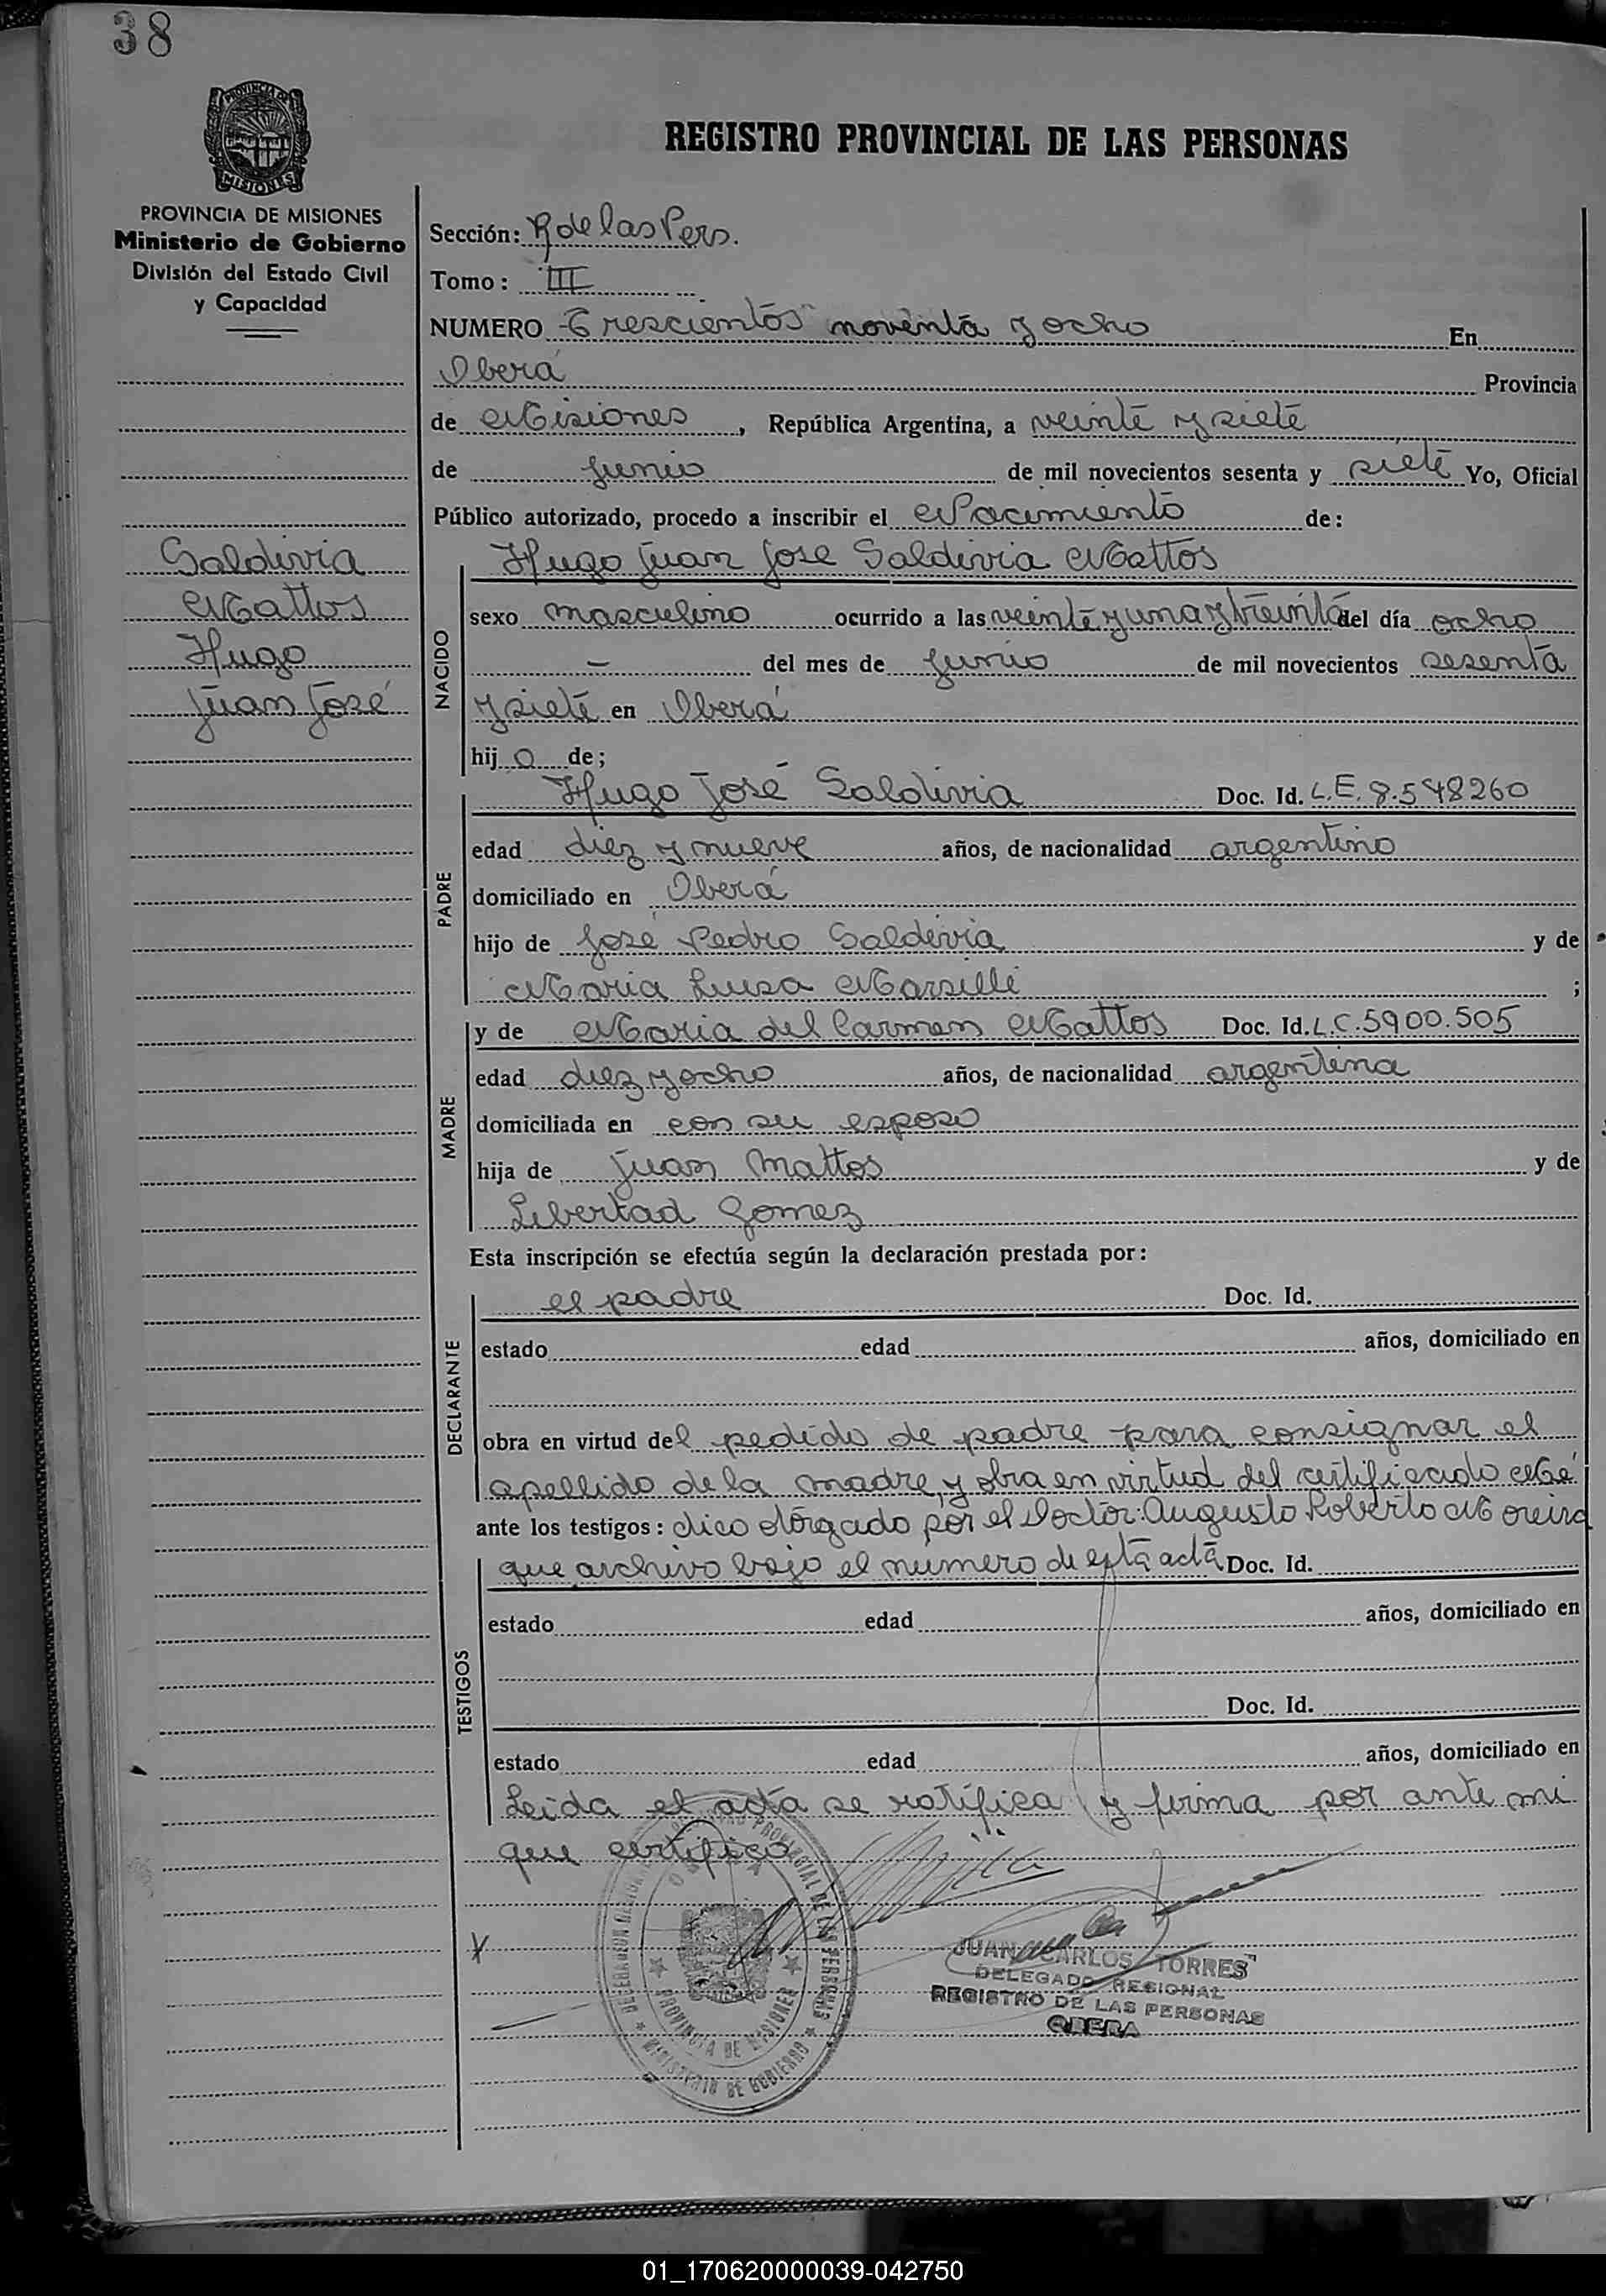 38
PROVINCIA DE
MISIONES
REGISTRO PROVINCIAL DE LAS PERSONAS
PROVINCIA DE MISIONES
Ministerio de Gobierno
División del Estado Civil
y Capacidad
Saldivia
Mattos
Hugo
Juan José
Sección: R de las Pers.
Tomo: III
NUMERO Trescientos noventa y ocho En
Oberá Provincia
de Misiones, República Argentina, a veinte y siete
de junio de mil novecientos sesenta y siete Yo, Oficial
Público autorizado, procedo a inscribir el Nacimiento de:
NACIDO
Hugo Juan Jose Saldivia Mattos
sexo masculino ocurrido a las veinte y una y treinta del día ocho
– del mes de junio de mil novecientos sesenta
y siete en Oberá
hijo de;
PADRE
Hugo José Saldivia Doc. Id. L.E. 8.548260
edad diez y nueve años, de nacionalidad argentino
domiciliado en Oberá
hijo de José Pedro Saldivia y de
Maria Luisa Marsilli ;
MADRE
y de Maria del Carmen Mattos Doc. Id. L.C. 5900.505
edad diez y ocho años, de nacionalidad argentina
domiciliada en con su esposo
hija de Juan Mattos y de
Libertad Gomez
Esta inscripción se efectúa según la declaración prestada por:
DECLARANTE
el padre Doc. Id.
estado edad años, domiciliado en
obra en virtud del pedido de padre para consignar el
apellido de la madre, y obra en virtud del certificado Mé
ante los testigos: dico otorgado por el Doctor: Augusto Roberto Moreira
TESTIGOS
que archivo bajo el numero de esta acta Doc. Id.
estado edad años, domiciliado en
Doc. Id.
estado edad años, domiciliado en
Leida el acta se ratifica y firma por ante mi
que certifico
PROVINCIAL DE LAS PERSONAS
PROVINCIA DE MISIONES
MINISTERIO DE GOBIERNO
JUAN CARLOS TORRES
DELEGADO REGIONAL
REGISTRO DE LAS PERSONAS
OBERA
01_170620000039-042750